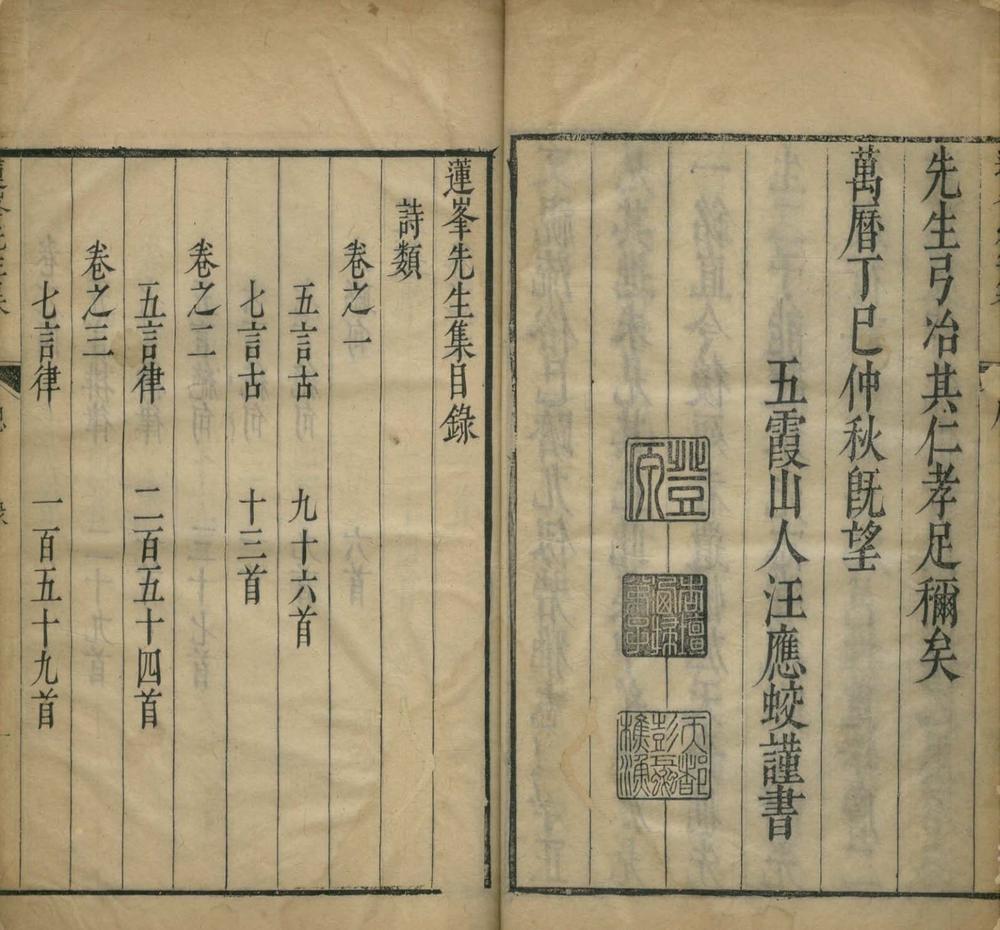 先生弓冶其仁孝足稱矣
萬曆丁巳仲秋旣望
五霞山人汪應蛟謹書
登原
天都彭蠡樵漁
蓮峯先生集目錄
詩類
卷之一
五言古 九十六首
七言古 十三首
卷之二
五言律 二百五十四首
卷之三
七言律 一百五十九首